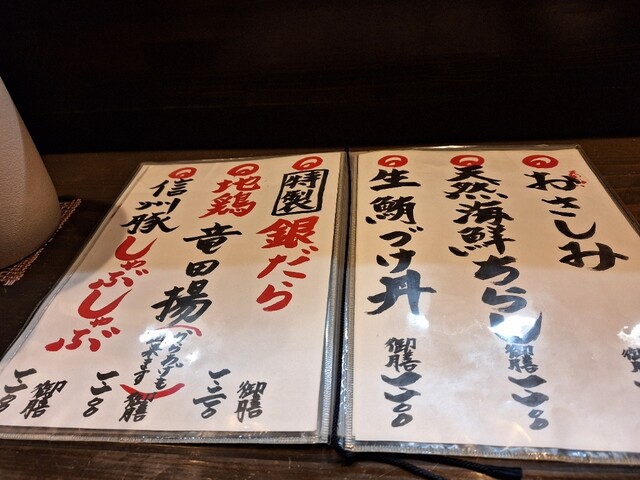 おさしみ 御膳
天然海鮮ちらし 御膳 一一〇〇
生鮪づけ丼 御膳 一一〇〇
特製 銀だら 御膳 一三〇〇
地鶏 竜田揚 (からあげも出来ます) 御膳 一一〇〇
信州豚 しゃぶしゃぶ 御膳 一一〇〇